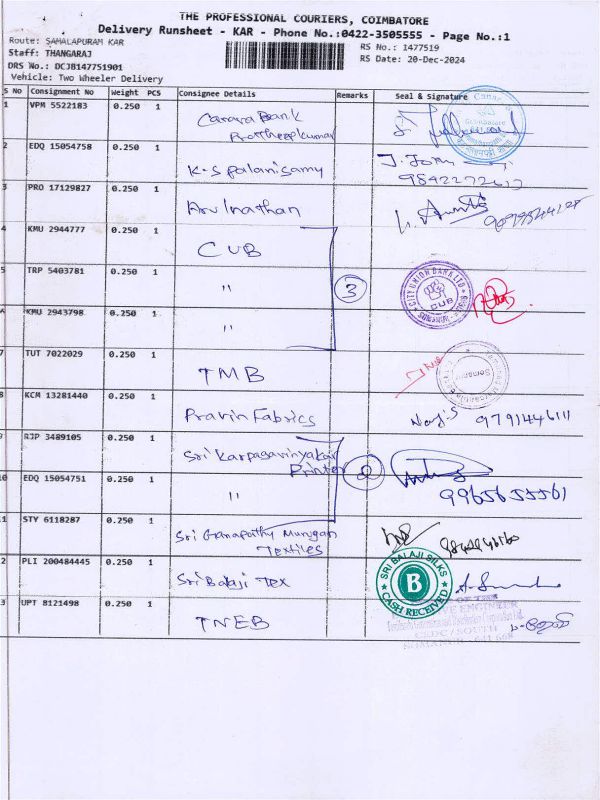 THE PROFESSIONAL COURIERS, COIMBATORE
Delivery Runsheet - KAR - Phone No.:0422-3505555 - Page No.:1
Route: SAMALAPURAM KAR
RS No.: 1477519
Staff: THANGARAJ
RS Date: 20-Dec-2024
DRS No.: DCJ8147751901
Vehicle: Two Wheeler Delivery
S No Consignment No Weight PCS Consignee Details Remarks Seal & Signature
1 VPM 5522183 0.250 1 Canara Bank
Pratheepkumar
2 EDQ 15054758 0.250 1 K-S Palanisamy
3 PRO 17129827 0.250 1 Arulnathan
4 KMU 2944777 0.250 1 CUB
5 TRP 5403781 0.250 1 " 3 CITY UNION BANK LTD CUB
6 KMU 2943798 0.250 1 "
7 TUT 7022029 0.250 1 TMB
8 KCM 13281440 0.250 1 Pravin Fabrics 9791446111
9 RJP 3489105 0.250 1 Sri Karpagavinyakar
Printer 2
10 EDQ 15054751 0.250 1 " 9965655561
11 STY 6118287 0.250 1 Sri Ganapathy Murugan
Textiles
12 PLI 200484445 0.250 1 Sri Balaji Tex SRI BALAJI SILKS B CASH RECEIVED
13 UPT 8121498 0.250 1 TNEB